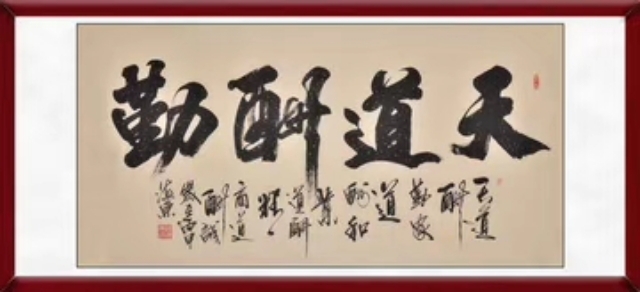 天道酬勤
天道
酬
勤家
道
酬和
業
道酬
精
商道
酬誠